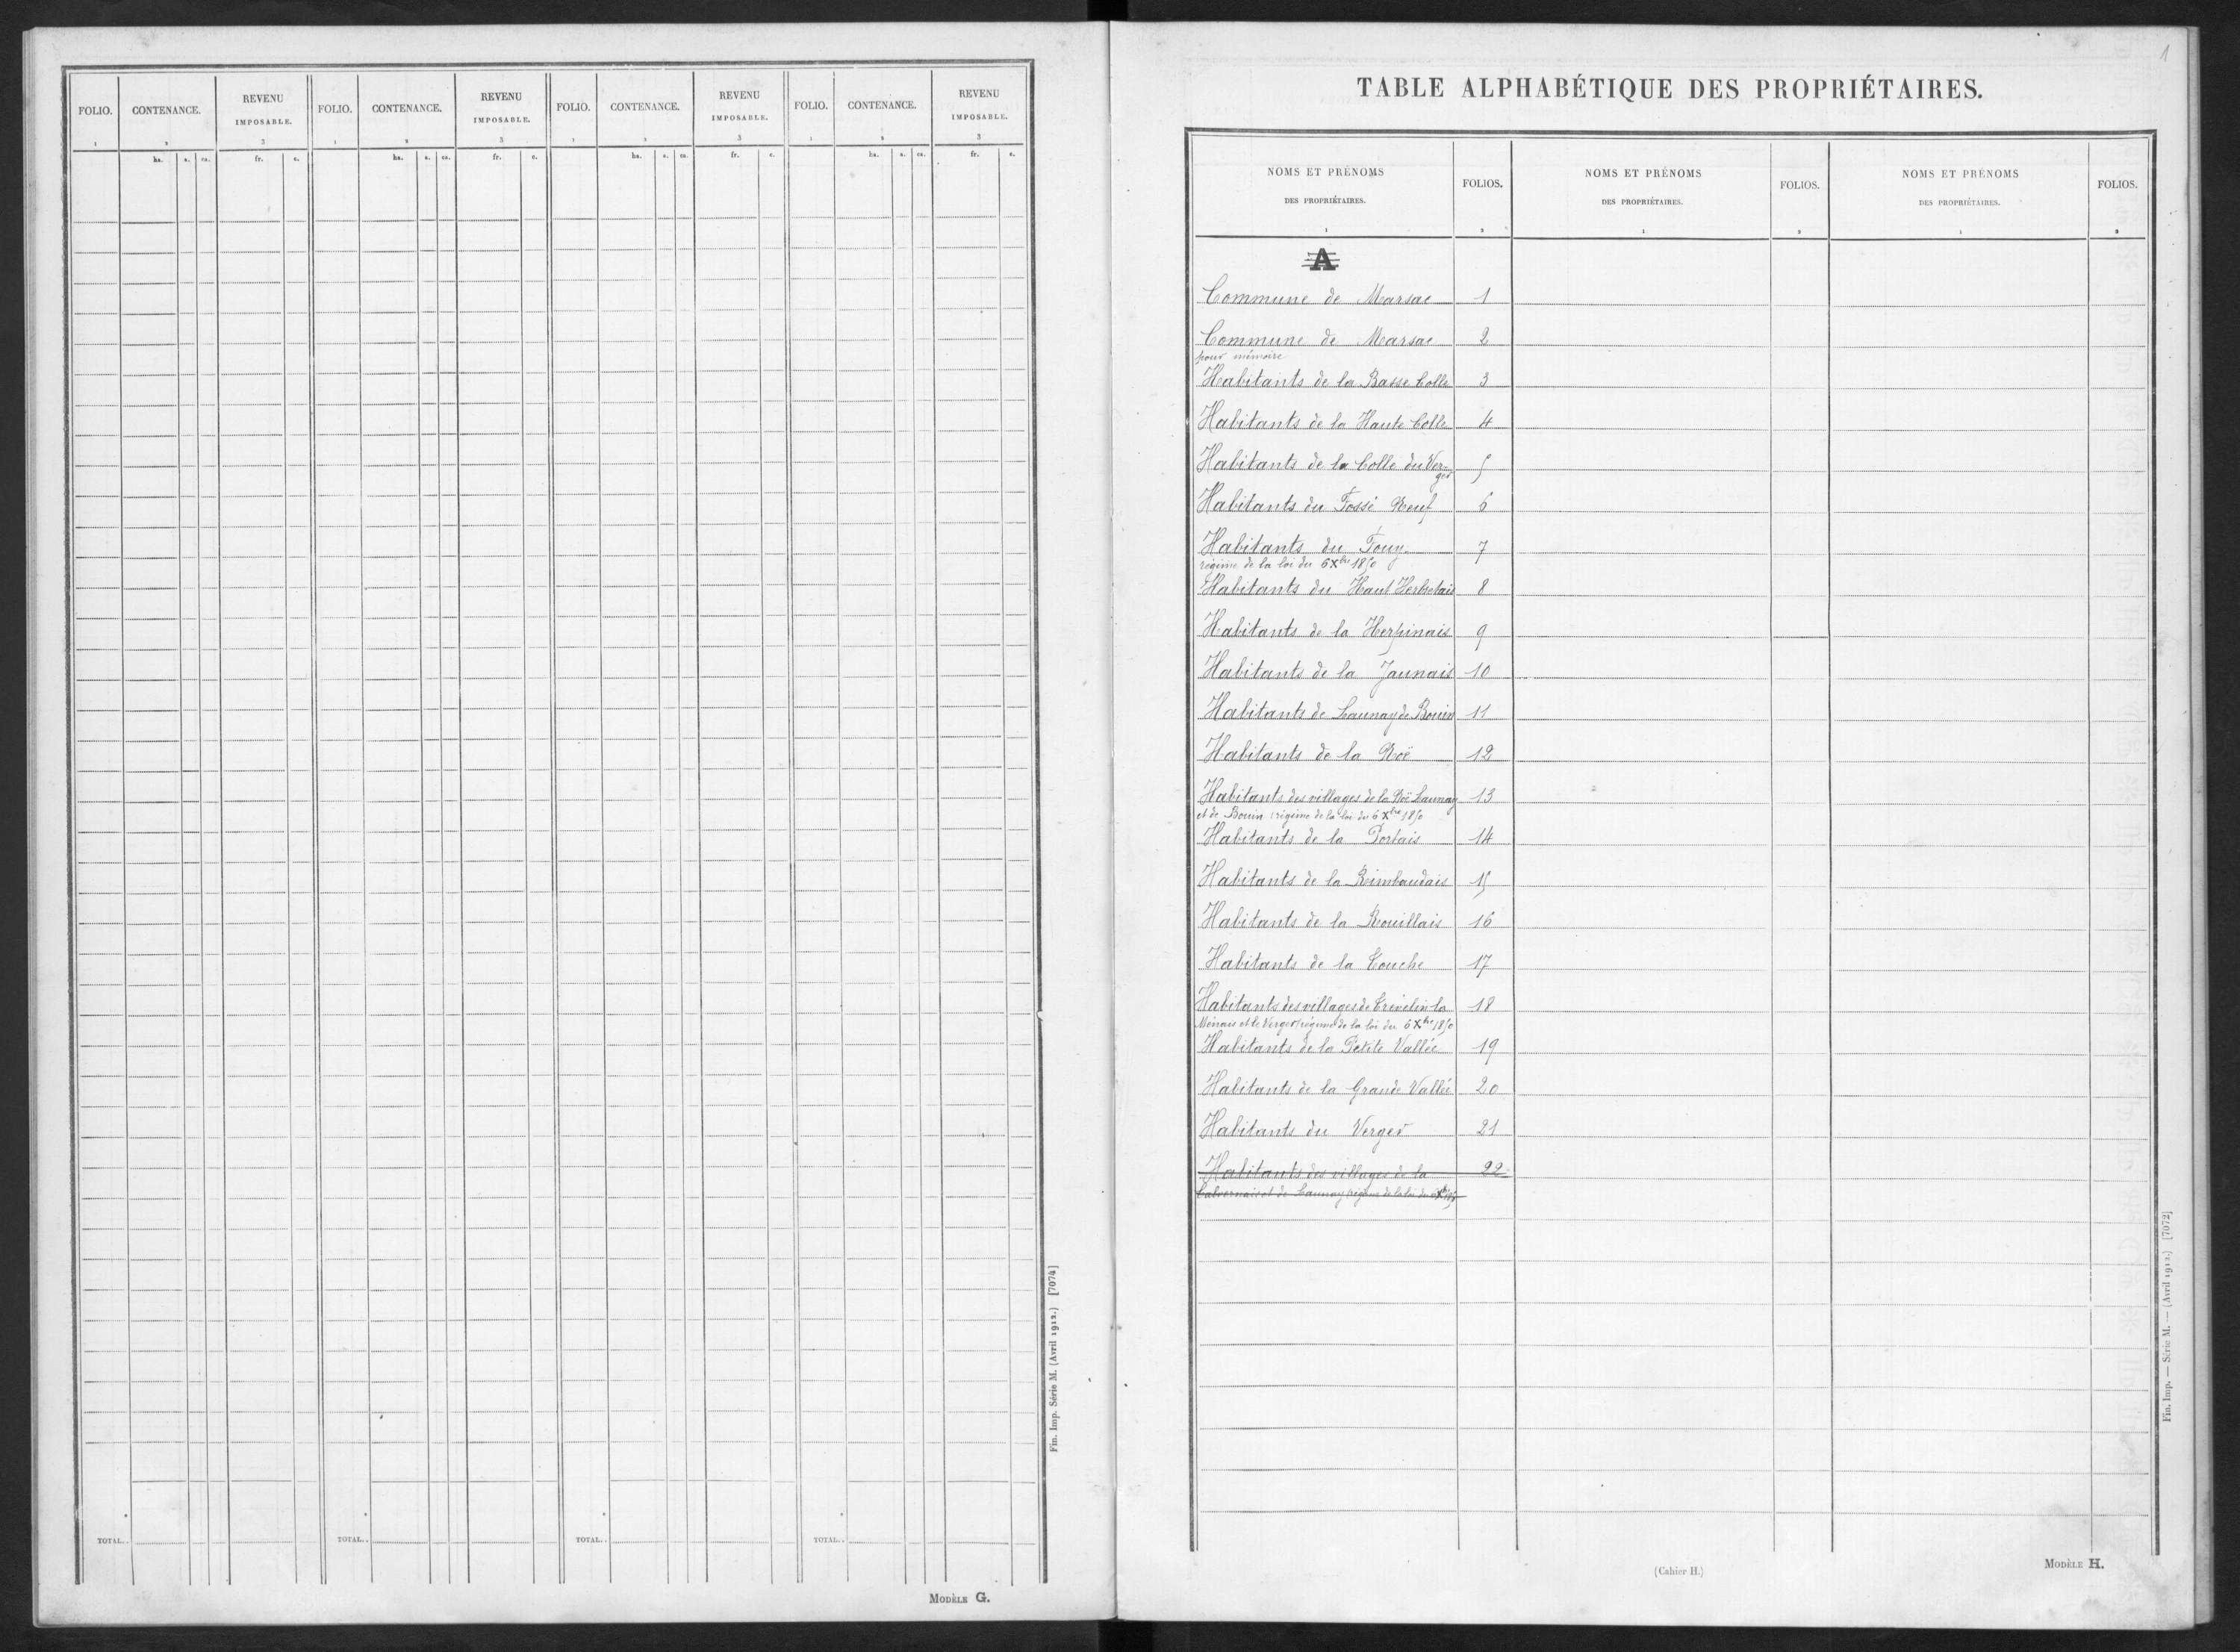 FOLIO. CONTENANCE. REVENU IMPOSABLE. FOLIO. CONTENANCE. REVENU IMPOSABLE. FOLIO. CONTENANCE. REVENU IMPOSABLE. FOLIO. CONTENANCE. REVENU IMPOSABLE.
1 2 3 1 2 3 1 2 3 1 2 3
ha. a. ca. fr. c. ha. a. ca. fr. c. ha. a. ca. fr. c. ha. a. ca. fr. c.
TOTAL.. TOTAL.. TOTAL.. TOTAL..
Fin. Imp. Série M. (Avril 1912.) [7074]
MODÈLE G.
1
TABLE ALPHABÉTIQUE DES PROPRIÉTAIRES.
NOMS ET PRÉNOMS DES PROPRIÉTAIRES. FOLIOS. NOMS ET PRÉNOMS DES PROPRIÉTAIRES. FOLIOS. NOMS ET PRÉNOMS DES PROPRIÉTAIRES. FOLIOS.
1 2 1 2 1 2
A
Commune de Marsac 1
Commune de Marsac 2
pour mémoire
Habitants de la Basse Colle 3
Habitants de la Haute Colle 4
Habitants de la Colle du Ver-
ger 5
Habitants du Fossé Neuf 6
Habitants du Fouy 7
régime de la loi du 6 Xbre 1850
Habitants du Haut Herbretais 8
Habitants de la Herpinais 9
Habitants de la Jaunais 10
Habitants de Launay de Bouin 11
Habitants de la Noë 12
Habitants des villages de la Noë Launay 13
et de Bouin régime de la loi du 6 Xbre 1850
Habitants de la Portais 14
Habitants de la Rimbaudais 15
Habitants de la Rouillais 16
Habitants de la Touche 17
Habitants des villages de Trévelin la 18
Ménais et le Verger régime de la loi du 6 Xbre 1850
Habitants de la Petite Vallée 19
Habitants de la Grande Vallée 20
Habitants du Verger 21
Habitants des villages de la 22
et de Launay régime de la loi du
(Cahier H.)
MODÈLE H.
Fin. Imp. — Série M. — (Avril 1912.) [7072]